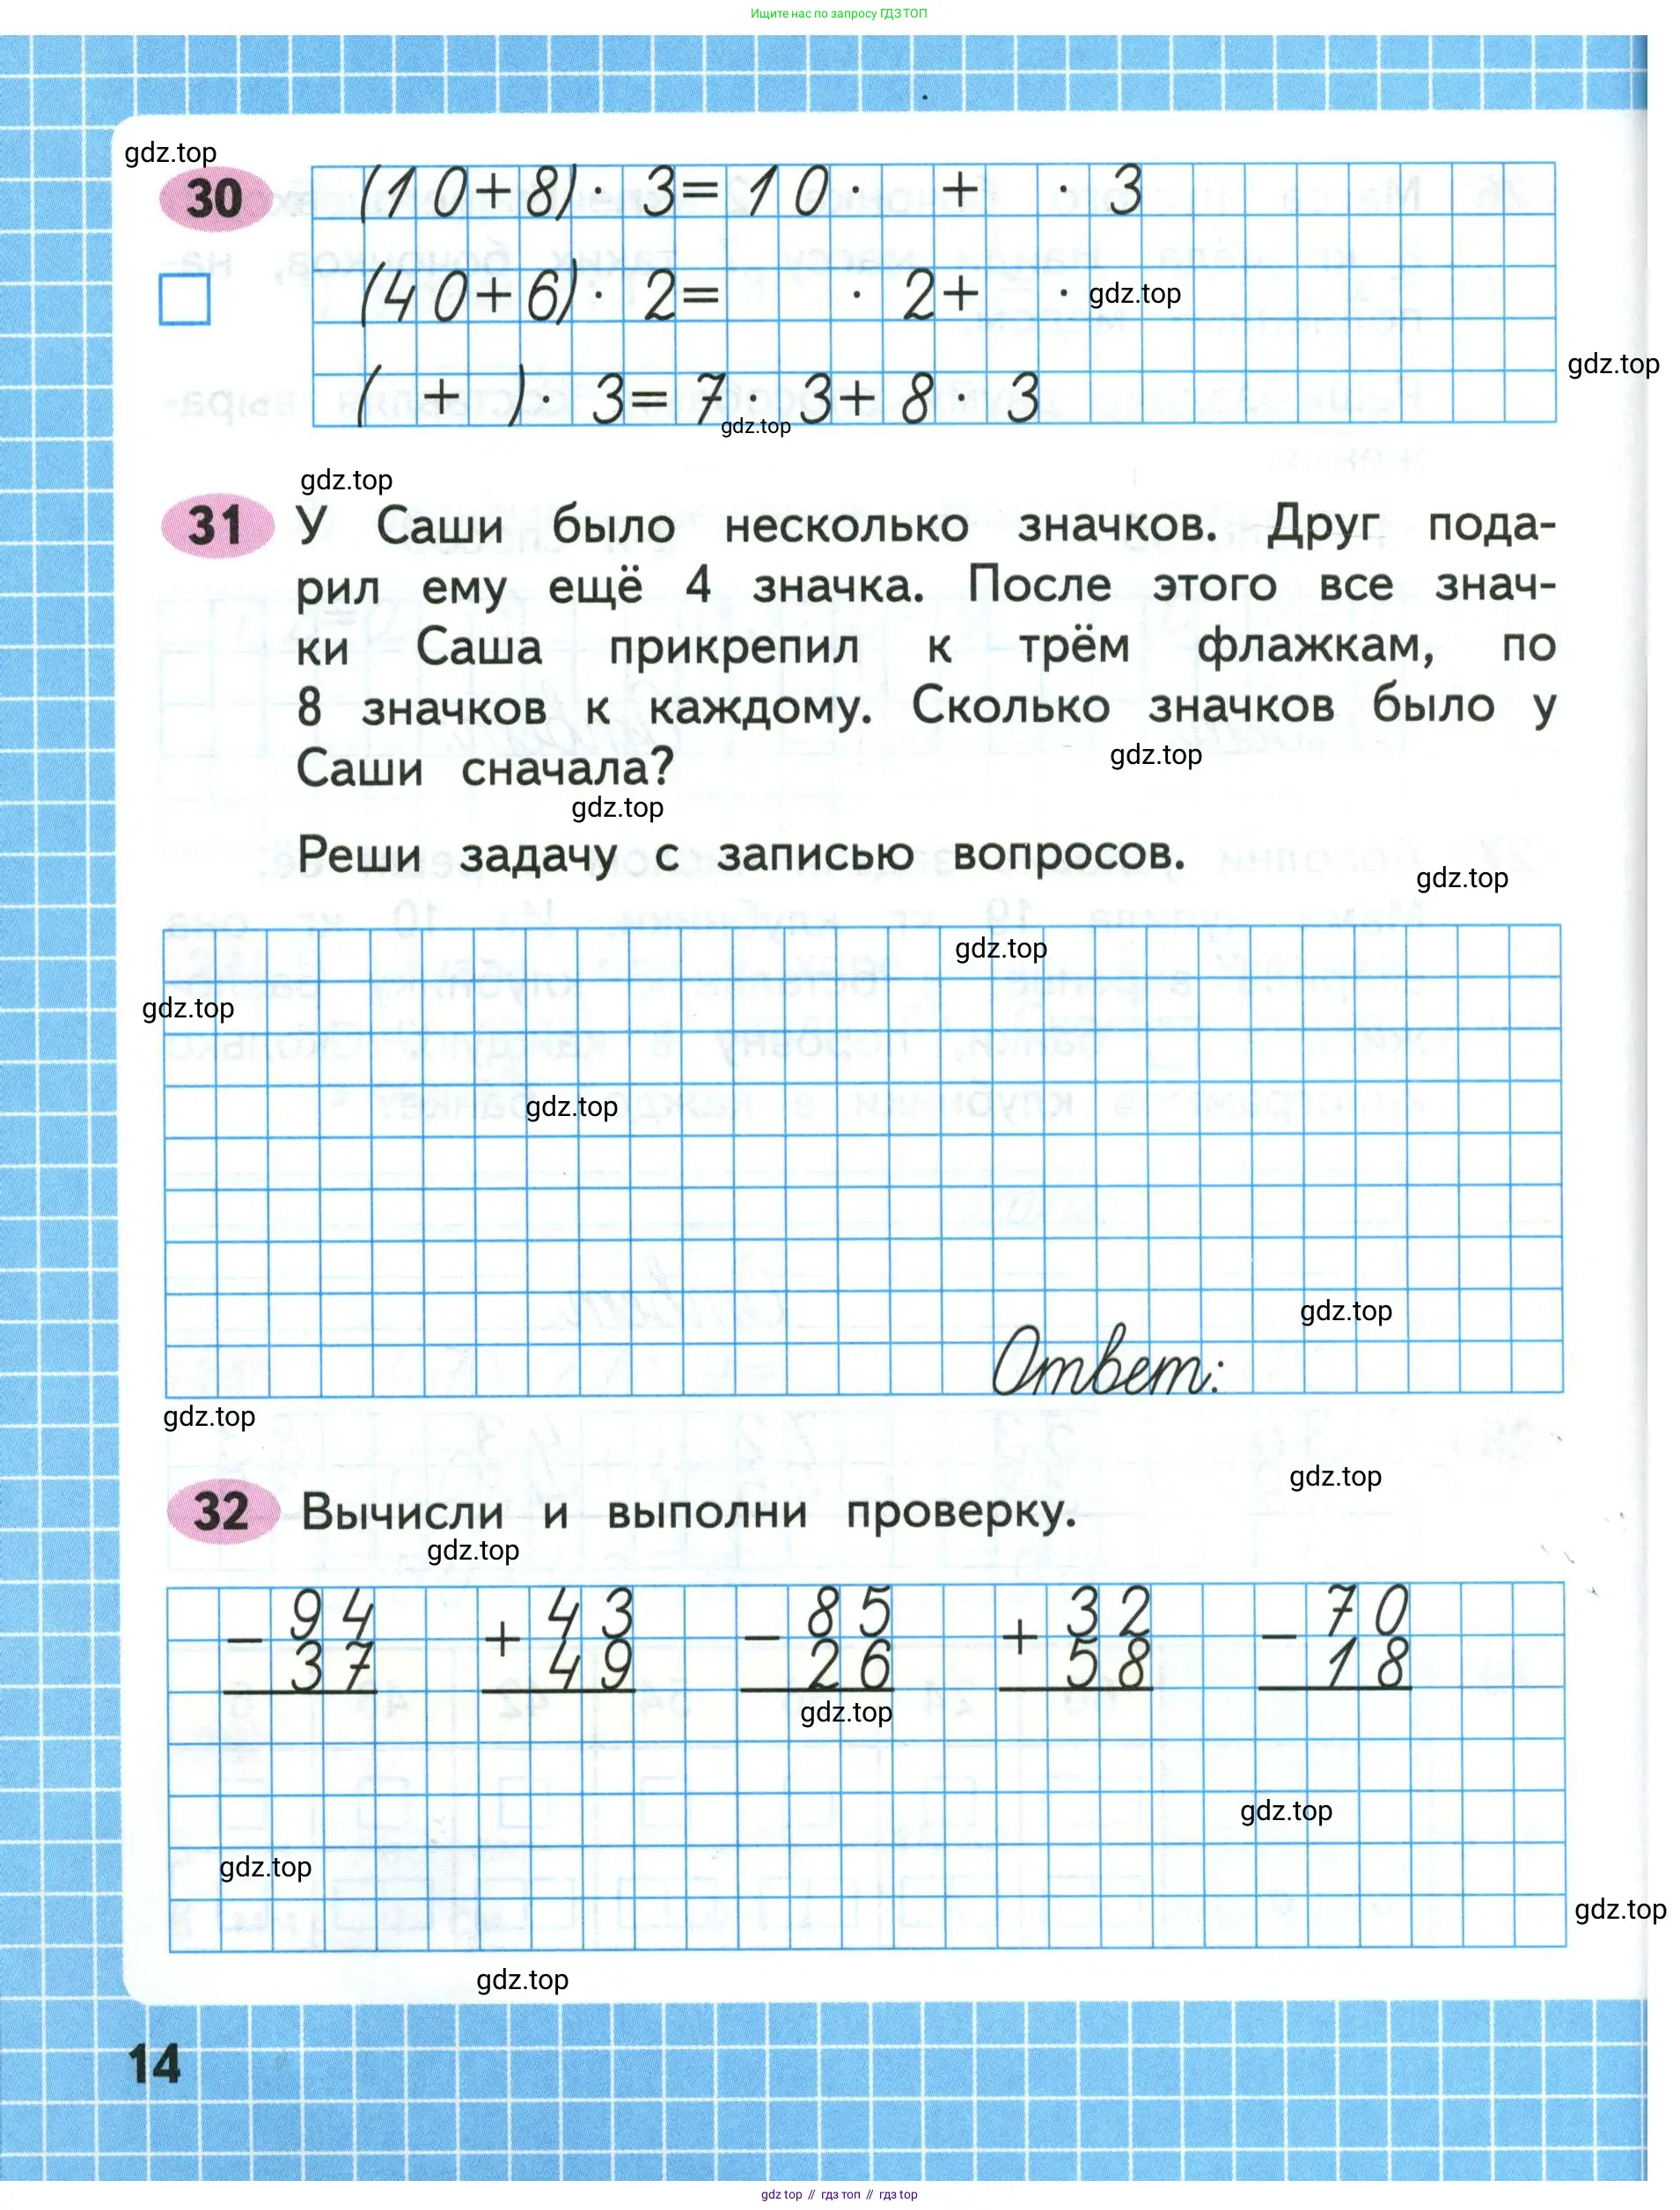 Ищите нас по запросу ГДЗ ТОП
gdz.top
30 (10+8)· 3=10· + · 3
(40+6)· 2= · 2+ · gdz.top
gdz.top
( + )· 3=7· 3+8· 3
gdz.top
gdz.top
31 У Саши было несколько значков. Друг пода-
рил ему ещё 4 значка. После этого все знач-
ки Саша прикрепил к трём флажкам, по
8 значков к каждому. Сколько значков было у
Саши сначала?
gdz.top
gdz.top
Реши задачу с записью вопросов.
gdz.top
gdz.top
gdz.top
gdz.top
gdz.top
Ответ:
gdz.top
gdz.top
32 Вычисли и выполни проверку.
gdz.top
- 94 + 43 - 85 + 32 - 70
37 49 26 58 18
gdz.top
gdz.top
gdz.top
gdz.top
gdz.top
14
gdz top // гдз топ // гдз top